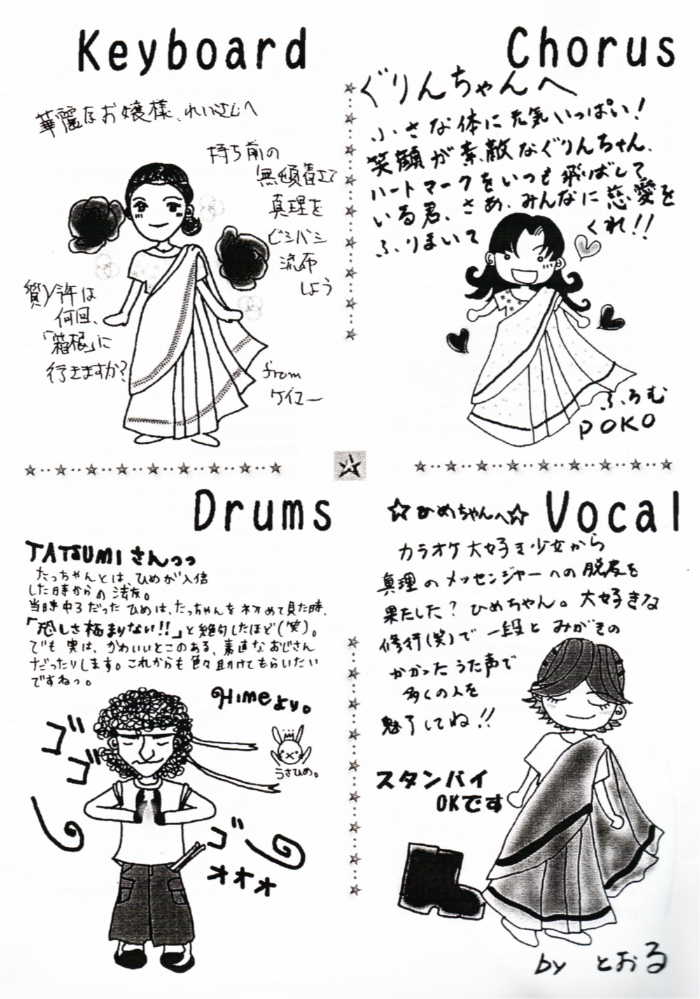 Keyboard
華麗なお嬢様、れいさんへ
持ち前の
無頓着さで
真理を
ビシバシ
流布
しよう
質）許は
何回、
「箱根」に
行きますか？
from
ケイユー
Chorus
ぐりんちゃんへ
小さな体に元気いっぱい！
笑顔が素敵なぐりんちゃん、
ハートマークをいつも飛ばして
いる君、さあ、みんなに恋愛を
ふりまいてくれ！！
ふろむ
POKO
Drums
TATSUMIさんっっ
たっちゃんとは、ひめが入信
した時からの法友。
当時中3だったひめは、たっちゃんを初めて見た時、
「恐しさ極まりない！！」と絶句したほど（笑）。
でも実は、かわいいとこのある、素直なおじさん
だったりします。これからも色々助けてもらいたい
ですねっ。
Himeより。
うさひめ。
ゴゴゴ
ゴ
オオオ
Vocal
☆ひめちゃんへ☆
カラオケ大好き少女から
真理のメッセンジャーへの脱皮を
果たした？ひめちゃん。大好きな
修行（笑）で一段とみがきの
かかったうた声で
多くの人を
魅了してね！！
スタンバイ
OKです
by とおる